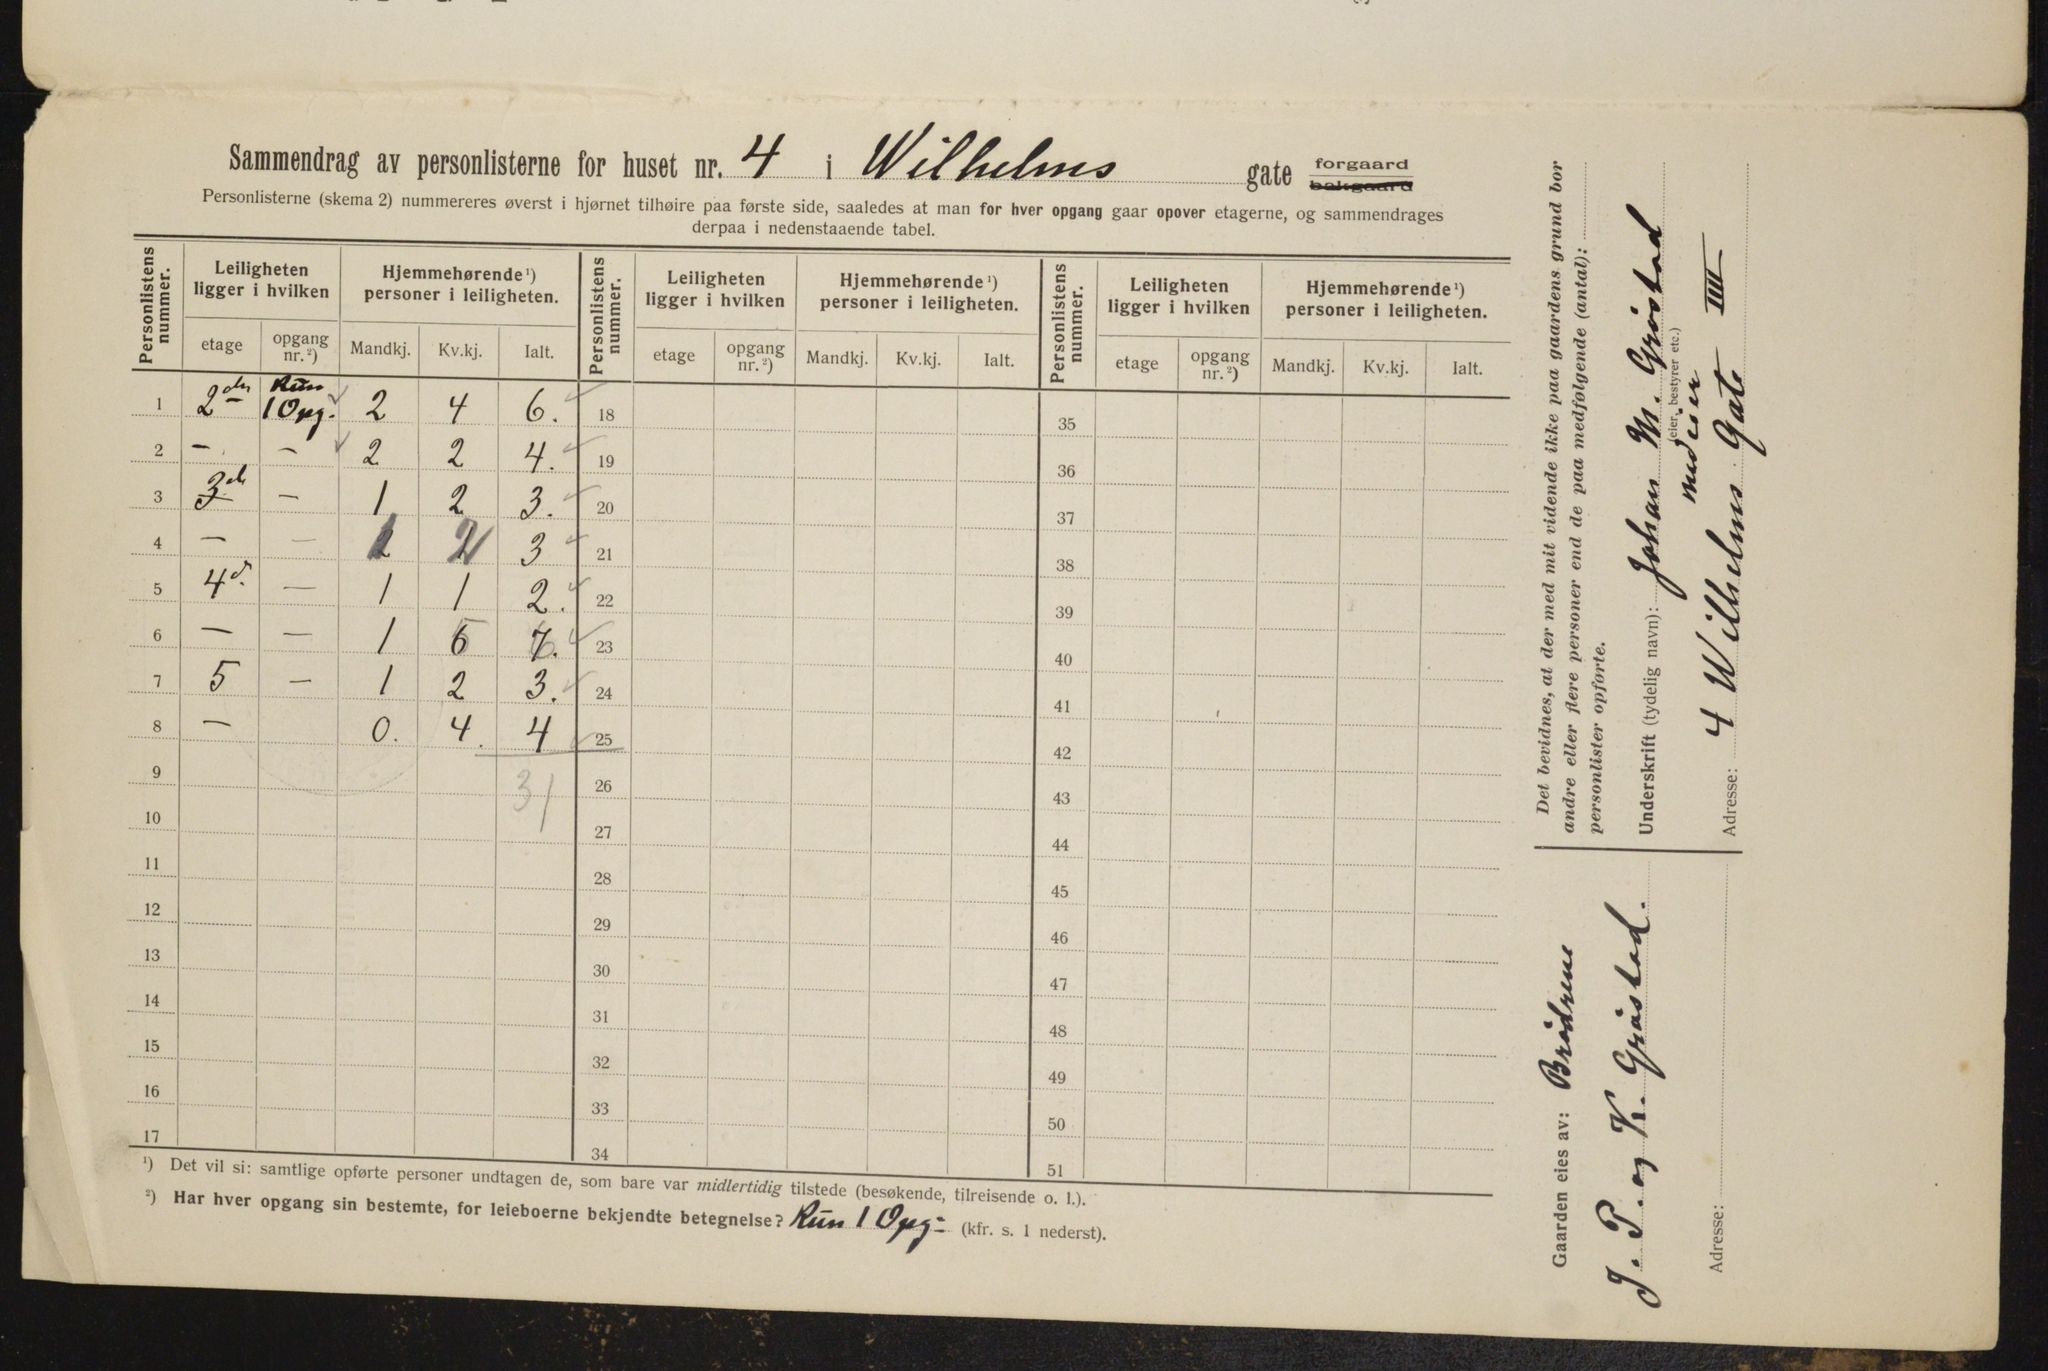 Sammendrag av personlisterne for huset nr. 4 i Wilhelms gate forgaard bakgaard
Personlisterne (skema 2) nummereres øverst i hjørnet tilhøire paa første side, saaledes at man for hver opgang gaar opover etagerne, og sammendrages
derpaa i nedenstaaende tabel.
Personlistens nummer. Leiligheten ligger i hvilken Hjemmehørende ¹) personer i leiligheten. Personlistens nummer. Leiligheten ligger i hvilken Hjemmehørende ¹) personer i leiligheten. Personlistens nummer. Leiligheten ligger i hvilken Hjemmehørende ¹) personer i leiligheten.
etage opgang nr. ²) Mandkj. Kv.kj. Ialt. etage opgang nr. ²) Mandkj. Kv.kj. Ialt. etage opgang nr. ²) Mandkj. Kv.kj. Ialt.
1 2den Kun 1 Opg. 2 4 6. 18 35
2 — — 2 2 4. 19 36
3 3d — 1 2 3. 20 37
4 — — 1 2 3 21 38
5 4d. — 1 1 2. 22 39
6 — — 1 5 6. 23 40
7 5 — 1 2 3. 24 41
8 — 0. 4. 4 25 42
9 31 26 43
10 27 44
11 28 45
12 29 46
13 30 47
14 31 48
15 32 49
16 33 50
17 34 51
¹) Det vil si: samtlige opførte personer undtagen de, som bare var midlertidig tilstede (besøkende, tilreisende o. l.).
²) Har hver opgang sin bestemte, for leieboerne bekjendte betegnelse? Kun 1 Opg- (kfr. s. 1 nederst).
Det bevidnes, at der med mit vidende ikke paa gaardens grund bor
andre eller flere personer end de paa medfølgende (antal):
personlister opførte.
Underskrift (tydelig navn): Johan M. Gjøstad
(eier, bestyrer etc.)
medeier
Adresse: 4 Wilhelms Gate IIII
Gaarden eies av: Brødrene
J. P. og K. Gjøstad.
Adresse: